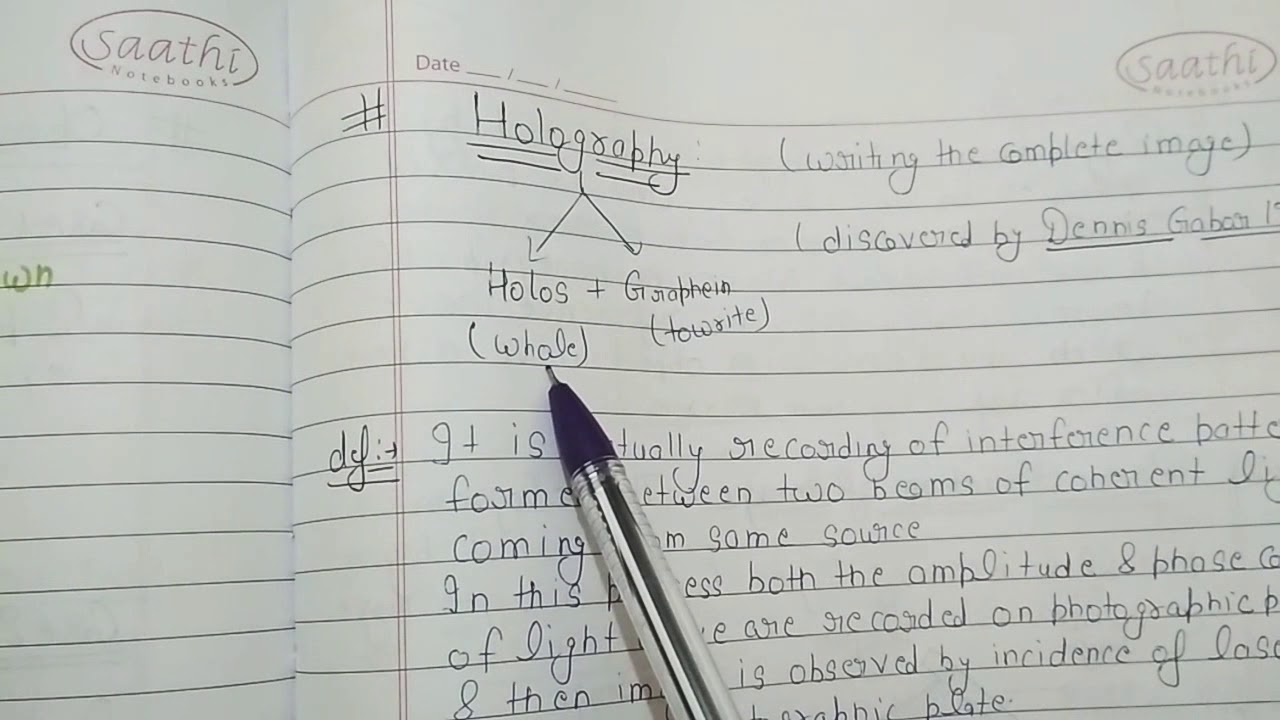 Saathi
Notebooks
Date __/__/__
Saathi
Notebooks
# Holography: (writing the complete image)
(discovered by Dennis Gabor
Holos + Graphein
(whole) (towrite)
wn
def:→ It is tually recording of interference
forme between two beams of coherent
coming same source
In this ess both the amplitude & phase
of light are recorded on photographic
& then is observed by incidence of
plate.